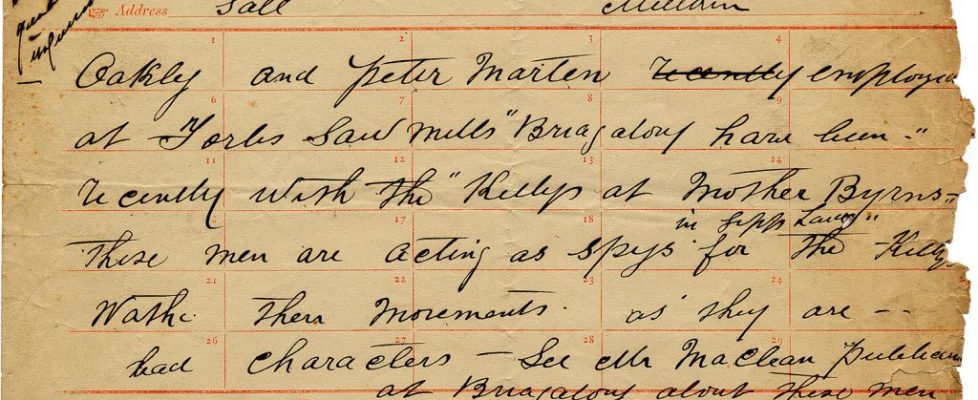 & Address Sale
1 2 3 4
Oakly and Peter Marten recently employed
6 7 8 9
at Forbs Saw Mills "Briagalong have been "
11 12 13 14
recently with the "Kellys at Mother Byrns "
17 18
in Gipps Land "
These men are acting as spys for the Kellys
21 22 23 24
their movements. as they are --
26 27 28 29
bad characters - See Mr Maclean Publican
at Briagalong about these men